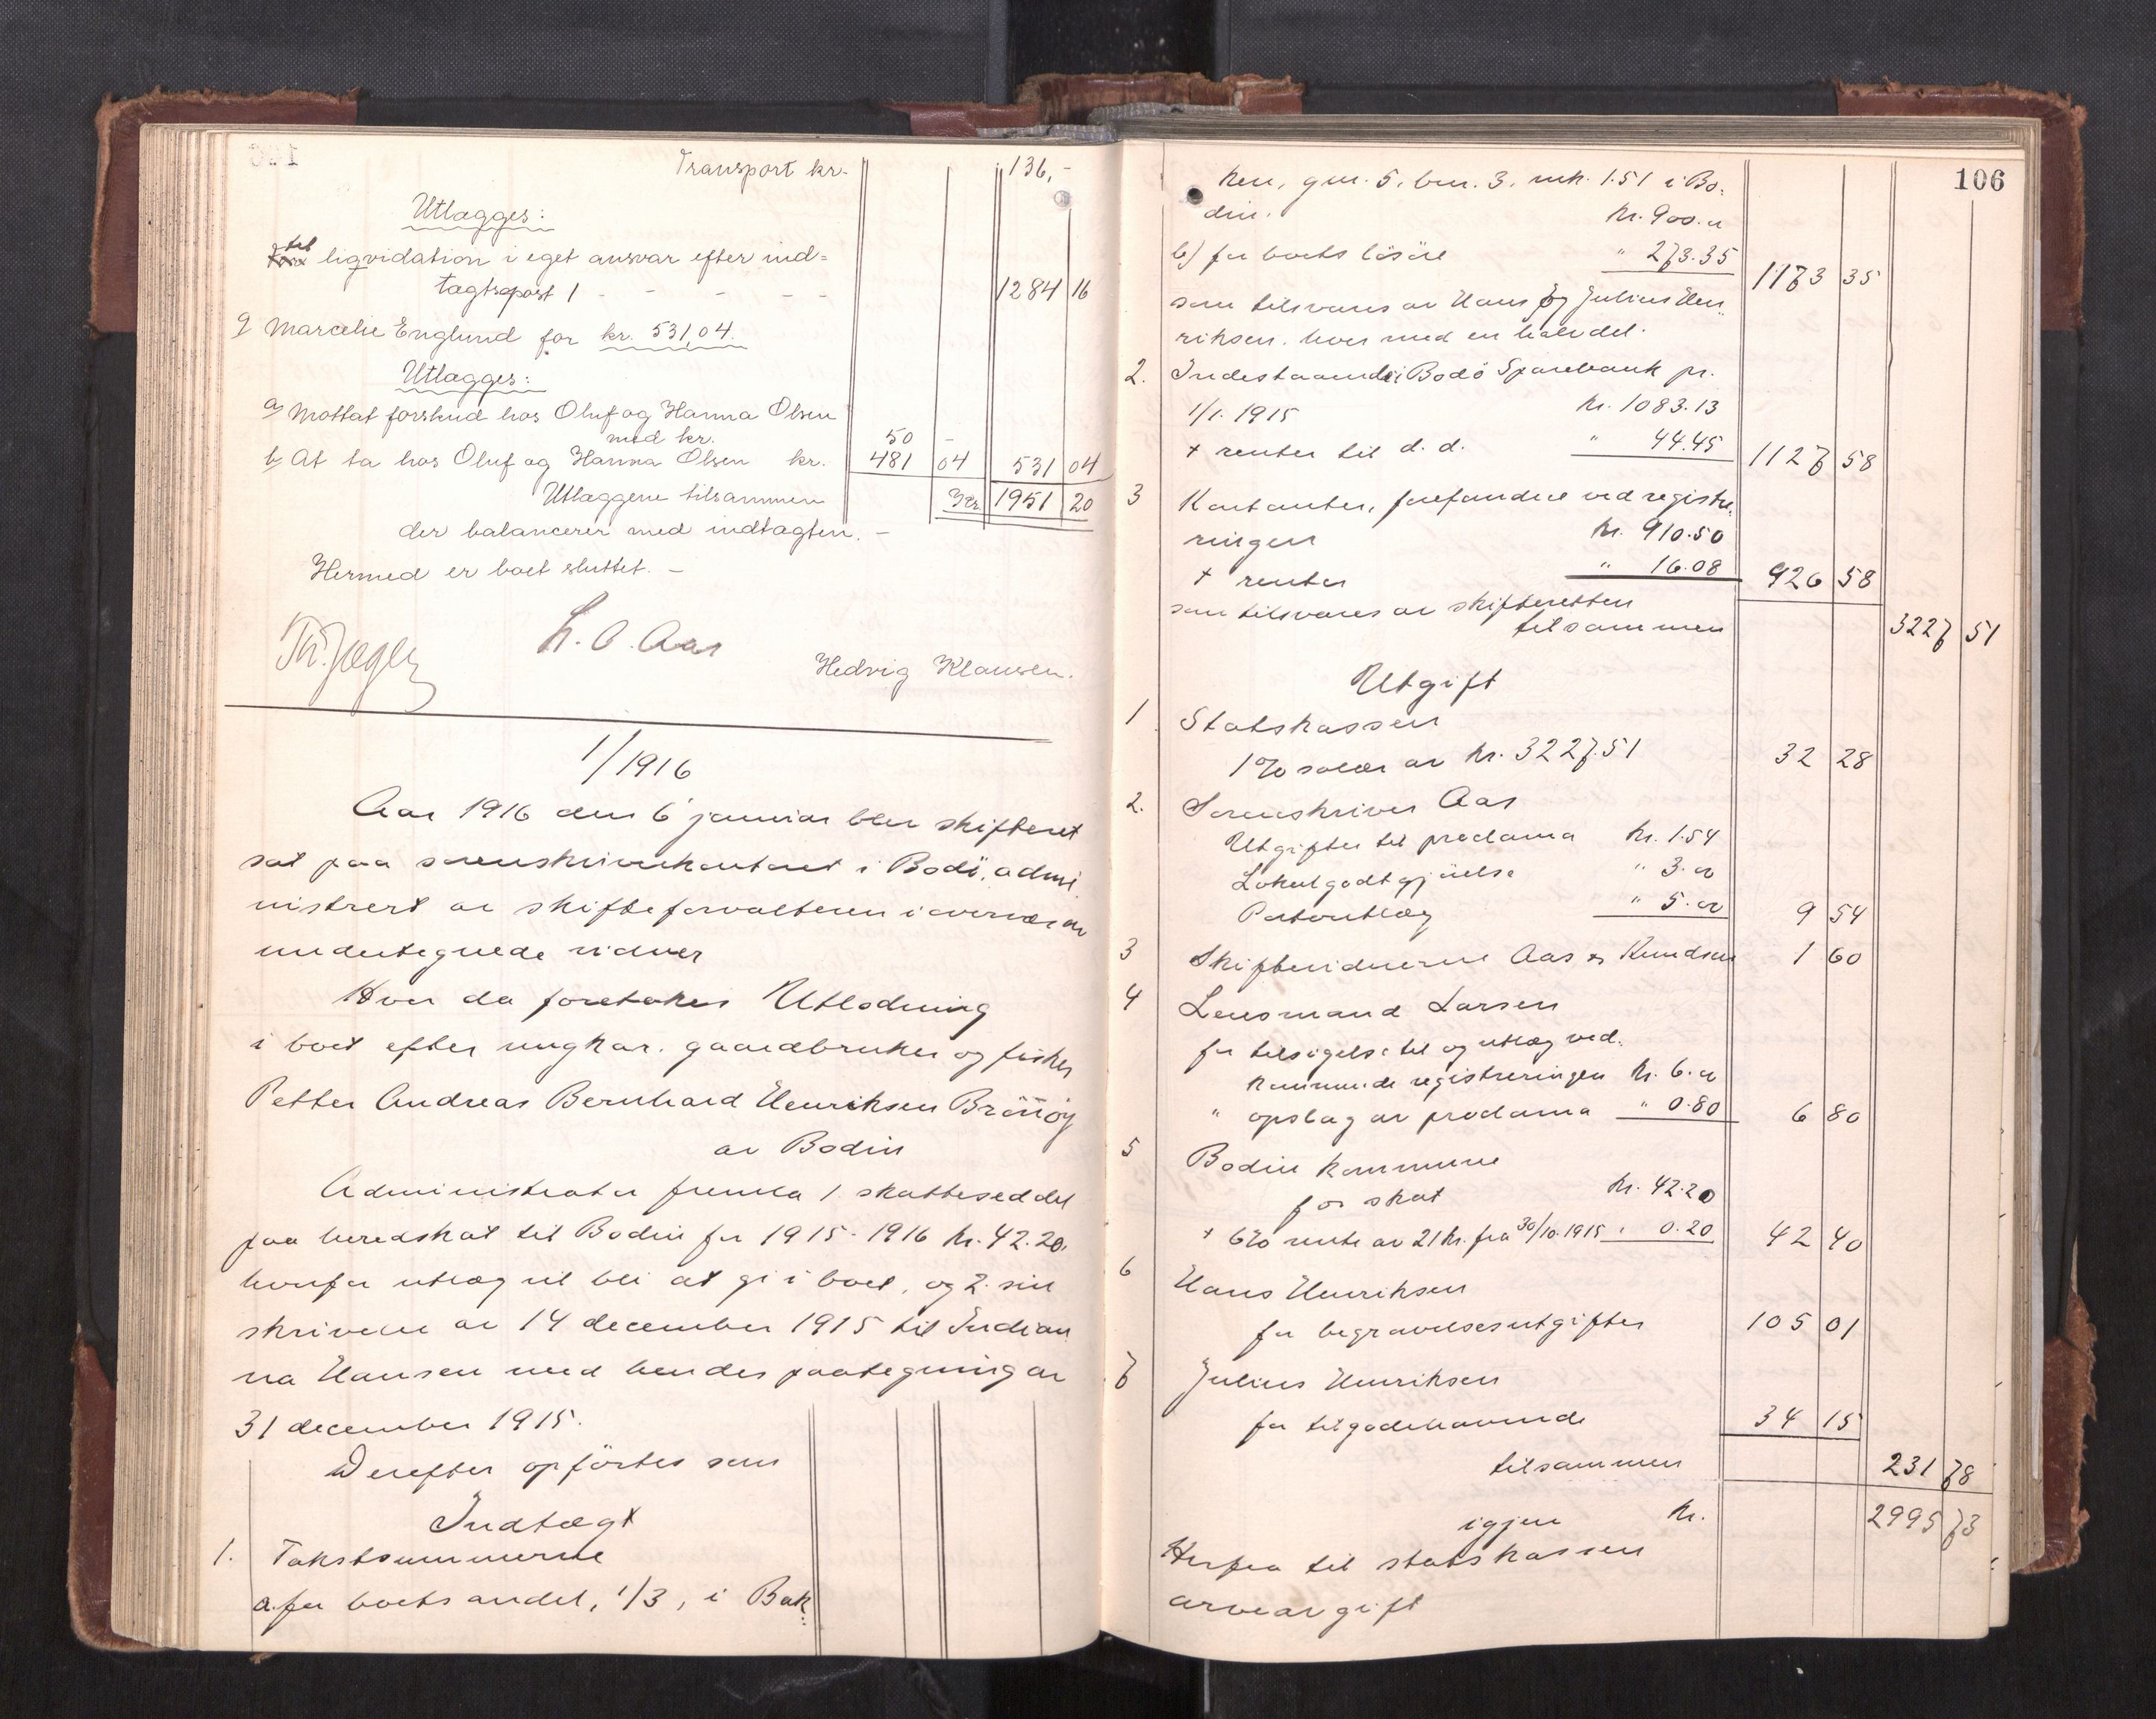 Transport kr. 136,-
Utlægges:
til liqvidation i eget ansvar efter ind=
tægtspost 1 - - - - - 1284 16
9 Marcelie Englund for kr. 531,04.
Utlægges:
a) Mottat forskud hos Oluf og Hanna Olsen
med kr. 50 -
b) At ta hos Oluf og Hanna Olsen kr. 481 04 531 04
Utlæggene tilsammen Kr. 1951 20
der balancerer med indtægten. -
Hermed er boet sluttet. -
Th. Jæger L. O. Aas Hedvig Klausen.
1/1916
Aar 1916 den 6 januar blev skifteret
sat paa sorenskriverkontoret i Bodö, admi
nistrert av skifteforvalteren i overvær av
undertegnede vidner
Hvor da foretokes Utlodning
i boet efter ungkar, gaardbruker og fisker
Petter Andreas Bernhard Henriksen Brönöy
av Bodin
Administrator fremla 1. skatteseddel
paa heredskat til Bodin for 1915-1916 kr. 42.20,
hvorfor utlæg vil bli at gi i boet, og 2. sin
skrivelse av 14 december 1915 til Indian
na Hansen med hendes paategning av
31 december 1915.
Derefter opförtes som
Indtægt
1. Takstsummerne
a. for boets andel, 1/3, i Bak
106
ken, gnr. 5, bnr. 3, mk. 1.51 i Bo:
din. kr. 900.00
b) for boets lösöre " 273.35 1173 35
som tilsvares av Hans og Julius Hen:
riksen, hver med en halvdel.
2. Indestaaende i Bodö Sparebank pr.
1/1. 1915 kr. 1083.13
+ renter til d. d. " 44.45 1127 58
3 Kontanter, forefundne ved registre:
ringen kr. 910.50
+ renter " 16.08 926 58
som tilsvares av skifteretten
tilsammen 3227 51
Utgift
1 Statskassen
1 % salær av kr. 3227.51 32 28
2. Sorenskriver Aas
Utgifter til proclama kr. 1.54
Lokalgodtgjörelse " 3.00
Portoutlæg " 5.00 9 54
3 Skiftevidnerne Aas og Knudsen 1 60
4 Lensmand Larsen
for tilsigelse til og utlæg ved:
kommende registreringen kr. 6.00
" opslag av proclama " 0.80 6 80
5 Bodin kommune
for skat kr. 42.20
+ 6% rente av 21 kr. fra 30/10. 1915 " 0.20 42 40
6 Hans Henriksen
for begravelsesutgifter 105 01
7 Julius Henriksen
for tilgodehavende 34 15
tilsammen 231 78
igjen kr. 2995 73
Herfra til statskassen
arveavgift